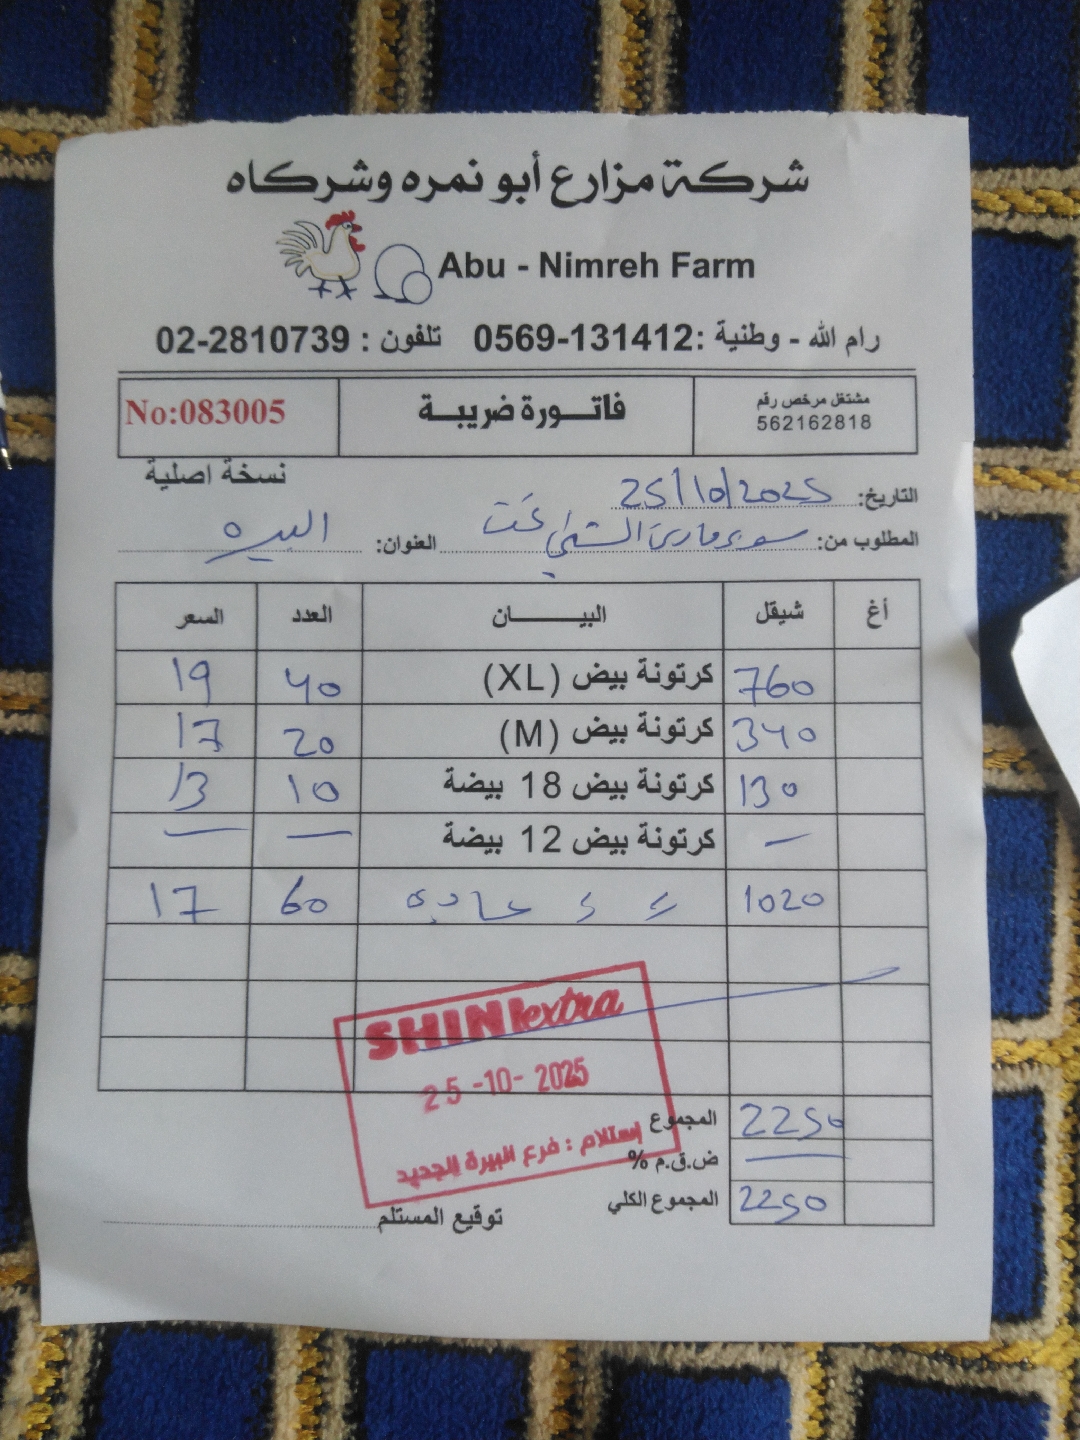 شركة مزارع أبو نمره وشركاه
Abu - Nimreh Farm
رام الله - وطنية :0569-131412 تلفون : 02-2810739
مشتغل مرخص رقم
562162818
فاتـورة ضريبـة
No:083005
نسخة اصلية
التاريخ: 25/10/2025
المطلوب من: سوبرماركت الشني العنوان: البيره
أغ شيقل البيـــــان العدد السعر
760 كرتونة بيض (XL) 40 19
340 كرتونة بيض (M) 20 17
130 كرتونة بيض 18 بيضة 10 13
— كرتونة بيض 12 بيضة — —
1020 عاديه 60 17
SHINI extra
25 -10- 2025
إستلام : فرع البيرة الجديد
المجموع 2250
ض.ق.م % —
المجموع الكلي 2250
توقيع المستلم